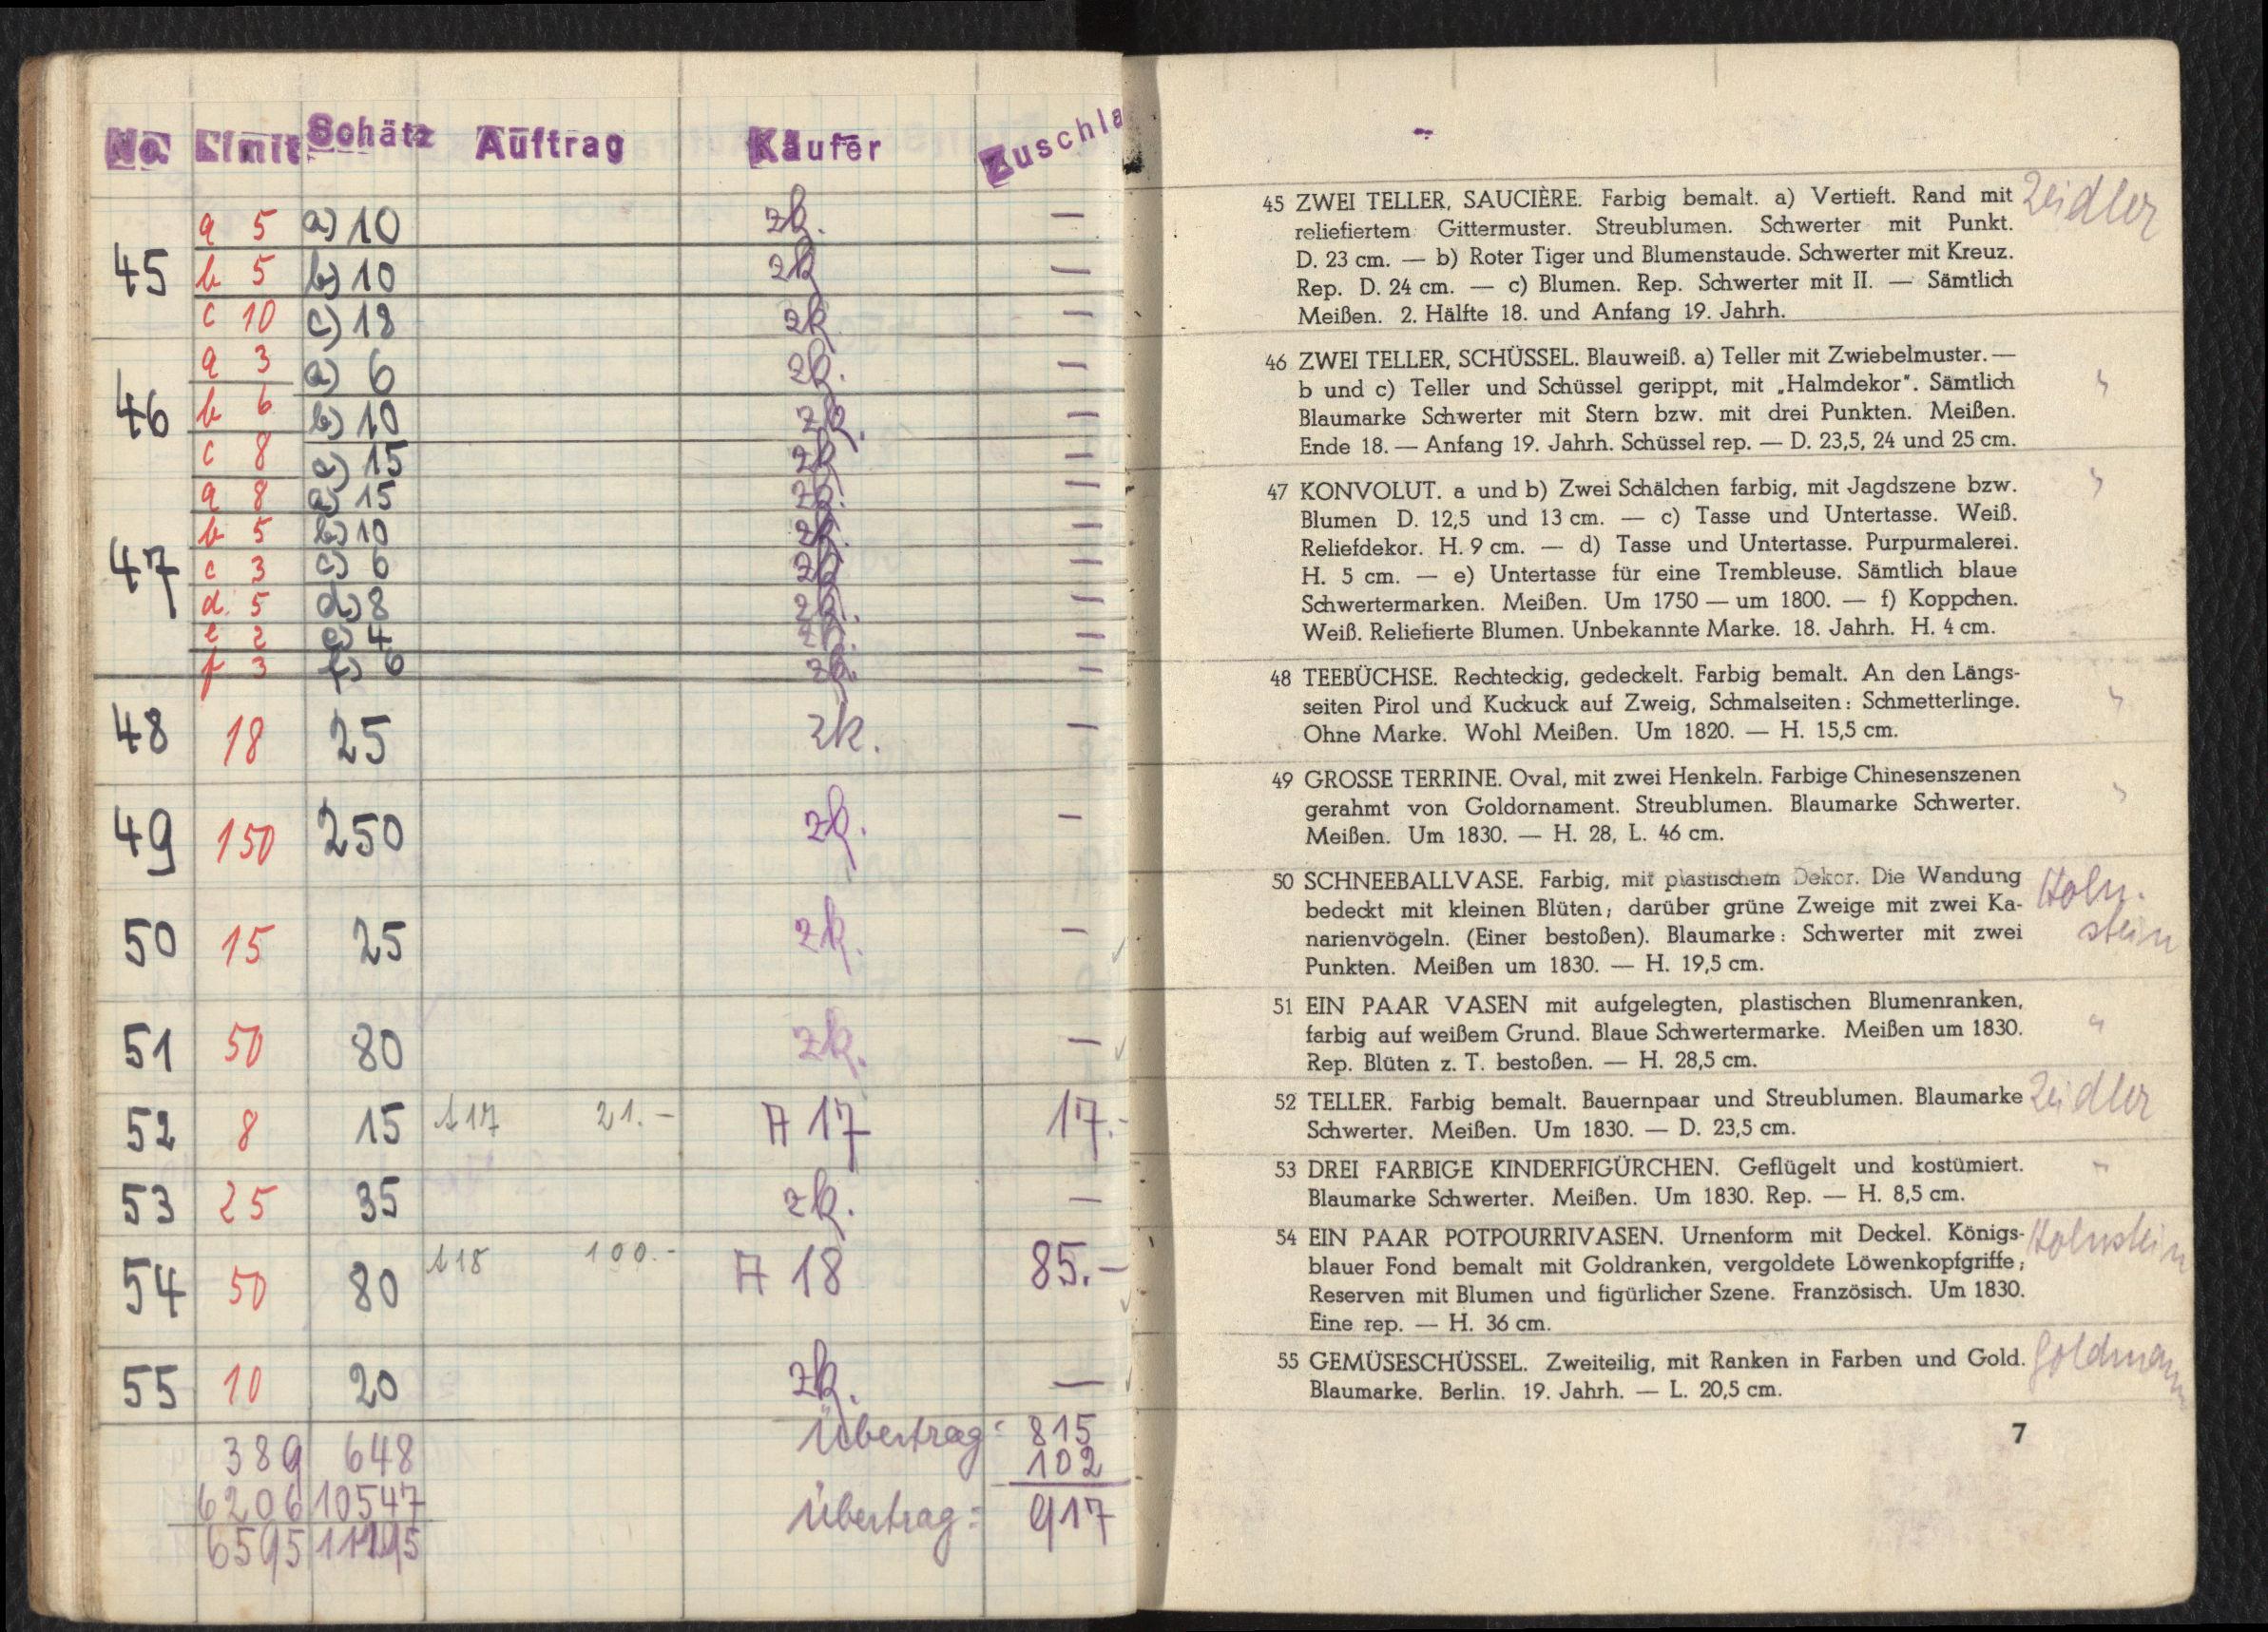 No. Limit Schätz Auftrag Käufer Zuschla
45 a 5 a) 10 zk. —
b 5 b) 10 zk —
c 10 c) 18 zk —
46 a 3 a) 6 zk. —
b 6 b) 10 zk. —
c 8 c) 15 zk —
47 a 8 a) 15 zk. —
b 5 b) 10 zk. —
c 3 c) 6 zk —
d. 5 d) 8 zk. —
e 2 e) 4 zk. —
f 3 f) 6 zk. —
48 18 25 zk. —
49 150 250 zk. —
50 15 25 zk. —
51 50 80 zk. —
52 8 15 A 17 21.— A 17 17.-
53 25 35 zk. —
54 50 80 A 18 100.- A 18 85.—
55 10 20 zk. —
389 648 Übertrag: 815
6206 10547 102
6595 Übertrag: 917
45 ZWEI TELLER, SAUCIÈRE. Farbig bemalt. a) Vertieft. Rand mit Zeidler
reliefiertem Gittermuster. Streublumen. Schwerter mit Punkt.
D. 23 cm. — b) Roter Tiger und Blumenstaude. Schwerter mit Kreuz.
Rep. D. 24 cm. — c) Blumen. Rep. Schwerter mit II. — Sämtlich
Meißen. 2. Hälfte 18. und Anfang 19. Jahrh.
46 ZWEI TELLER, SCHÜSSEL. Blauweiß. a) Teller mit Zwiebelmuster. —
b und c) Teller und Schüssel gerippt, mit „Halmdekor". Sämtlich
Blaumarke Schwerter mit Stern bzw. mit drei Punkten. Meißen.
Ende 18. — Anfang 19. Jahrh. Schüssel rep. — D. 23,5, 24 und 25 cm.
47 KONVOLUT. a und b) Zwei Schälchen farbig, mit Jagdszene bzw.
Blumen D. 12,5 und 13 cm. — c) Tasse und Untertasse. Weiß.
Reliefdekor. H. 9 cm. — d) Tasse und Untertasse. Purpurmalerei.
H. 5 cm. — e) Untertasse für eine Trembleuse. Sämtlich blaue
Schwertermarken. Meißen. Um 1750 — um 1800. — f) Koppchen.
Weiß. Reliefierte Blumen. Unbekannte Marke. 18. Jahrh. H. 4 cm.
48 TEEBÜCHSE. Rechteckig, gedeckelt. Farbig bemalt. An den Längs-
seiten Pirol und Kuckuck auf Zweig, Schmalseiten: Schmetterlinge.
Ohne Marke. Wohl Meißen. Um 1820. — H. 15,5 cm.
49 GROSSE TERRINE. Oval, mit zwei Henkeln. Farbige Chinesenszenen
gerahmt von Goldornament. Streublumen. Blaumarke Schwerter.
Meißen. Um 1830. — H. 28, L. 46 cm.
50 SCHNEEBALLVASE. Farbig, mit plastischem Dekor. Die Wandung Holn-
bedeckt mit kleinen Blüten; darüber grüne Zweige mit zwei Ka- stein
narienvögeln. (Einer bestoßen). Blaumarke: Schwerter mit zwei
Punkten. Meißen um 1830. — H. 19,5 cm.
51 EIN PAAR VASEN mit aufgelegten, plastischen Blumenranken,
farbig auf weißem Grund. Blaue Schwertermarke. Meißen um 1830.
Rep. Blüten z. T. bestoßen. — H. 28,5 cm.
52 TELLER. Farbig bemalt. Bauernpaar und Streublumen. Blaumarke Zeidler
Schwerter. Meißen. Um 1830. — D. 23,5 cm.
53 DREI FARBIGE KINDERFIGÜRCHEN. Geflügelt und kostümiert.
Blaumarke Schwerter. Meißen. Um 1830. Rep. — H. 8,5 cm.
54 EIN PAAR POTPOURRIVASEN. Urnenform mit Deckel. Königs- Holnstein
blauer Fond bemalt mit Goldranken, vergoldete Löwenkopfgriffe;
Reserven mit Blumen und figürlicher Szene. Französisch. Um 1830.
Eine rep. — H. 36 cm.
55 GEMÜSESCHÜSSEL. Zweiteilig, mit Ranken in Farben und Gold. Goldmann
Blaumarke. Berlin. 19. Jahrh. — L. 20,5 cm.
7